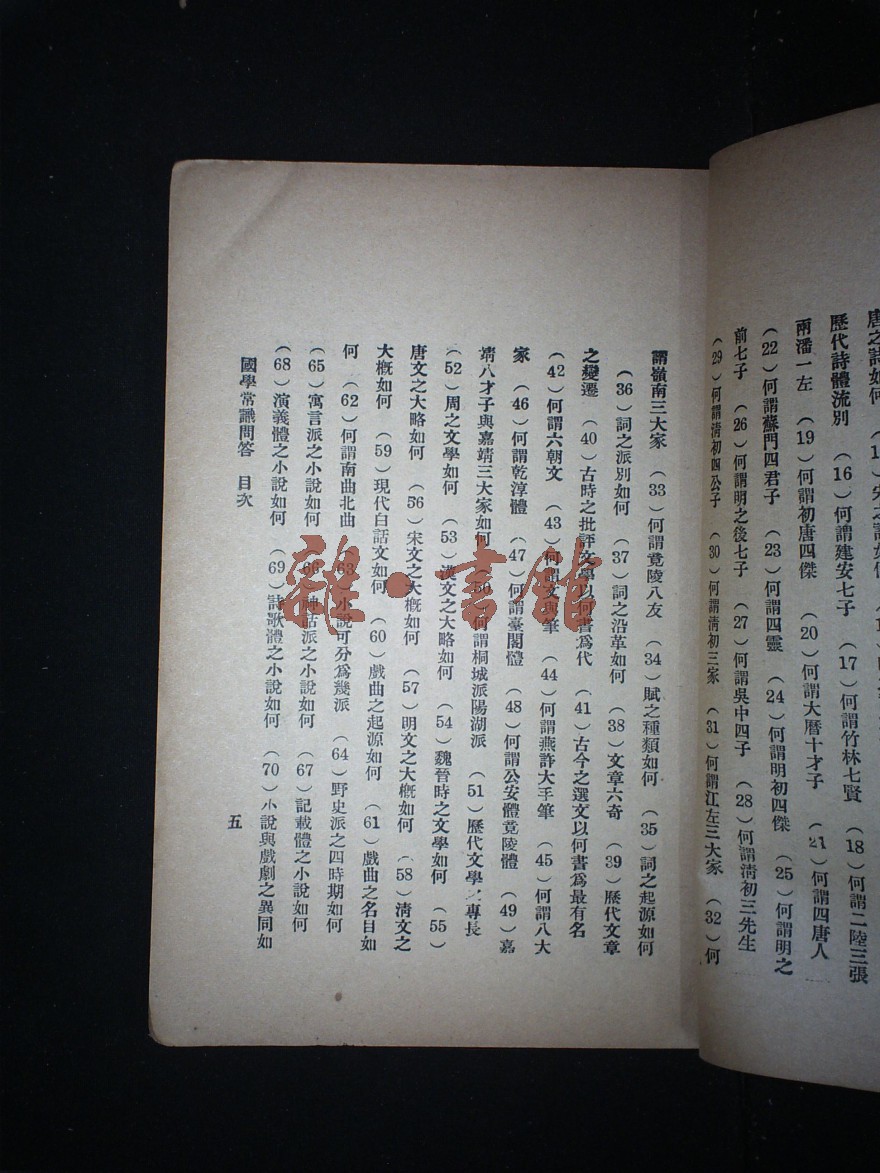 唐之詩如何
歷代詩體流別 （16）何謂建安七子 （17）何謂竹林七賢 （18）何謂二陸三張
兩潘一左 （19）何謂初唐四傑 （20）何謂大曆十才子 （21）何謂四唐人
（22）何謂蘇門四君子 （23）何謂四靈 （24）何謂明初四傑 （25）何謂明之
前七子 （26）何謂明之後七子 （27）何謂吳中四子 （28）何謂清初三先生
（29）何謂清初四公子 （30）何謂清初三家 （31）何謂江左三大家 （32）何
謂嶺南三大家 （33）何謂竟陵八友 （34）賦之種類如何 （35）詞之起源如何
（36）詞之派別如何 （37）詞之沿革如何 （38）文章六奇 （39）歷代文章
之變遷 （40）古時之批評文學以何書爲代 （41）古今之選文以何書爲最有名
（42）何謂六朝文 （43）何謂文與筆 （44）何謂燕許大手筆 （45）何謂八大
家 （46）何謂乾淳體 （47）何謂臺閣體 （48）何謂公安體竟陵體 （49）嘉
靖八才子與嘉靖三大家如何 （50）何謂桐城派陽湖派 （51）歷代文學之專長
（52）周之文學如何 （53）漢文之大略如何 （54）魏晉時之文學如何 （55）
唐文之大略如何 （56）宋文之大槪如何 （57）明文之大槪如何 （58）清文之
大槪如何 （59）現代白話文如何 （60）戲曲之起源如何 （61）戲曲之名目如
何 （62）何謂南曲北曲 （63）小說可分爲幾派 （64）野史派之四時期如何
（65）寓言派之小說如何 （66）神話派之小說如何 （67）記載體之小說如何
（68）演義體之小說如何 （69）詩歌體之小說如何 （70）小說與戲劇之異同如
國學常識問答 目次
五
雜·書館